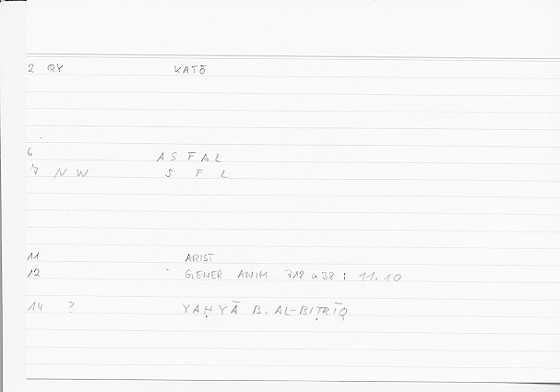 2 RY KATŌ
6 ASFAL
7 NW S F L
11 ARIST
12 GENER ANIM 718 a 38 : 11.10
14 ? YAḤYĀ B. AL-BIṬRĪQ